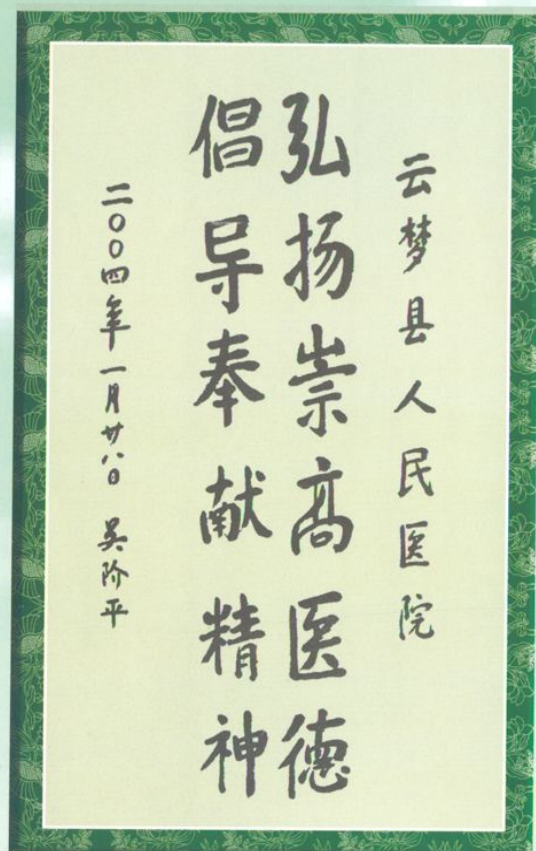 云梦县人民医院
弘扬崇高医德
倡导奉献精神
二〇〇四年一月廿八日 吴阶平